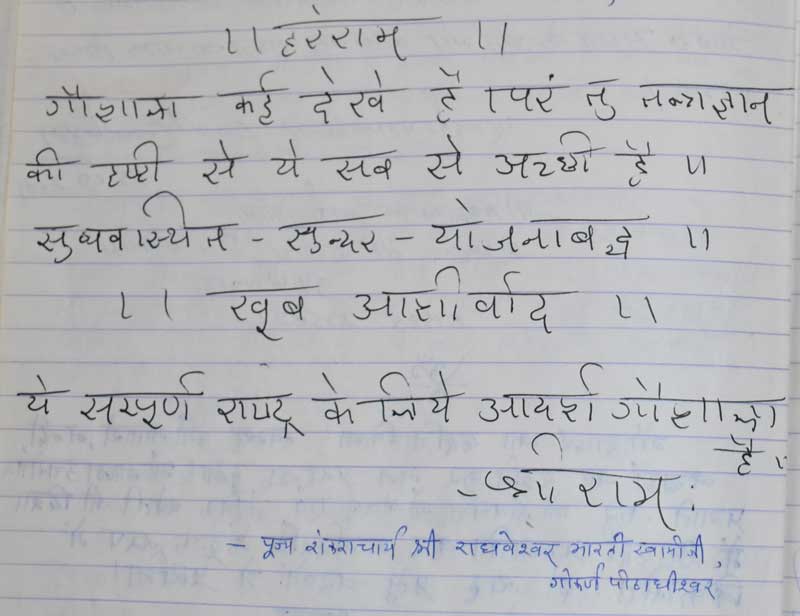 ।। हरेराम ।।
गौशाला कई देखे है । परं तु तत्वज्ञान
की दृष्टी से ये सब से अच्छी है ॥
सुव्यवास्थित - सुन्दर - योजनाबद्ध ॥
।। खूब आशीर्वाद ।।
ये सम्पूर्ण राष्ट्र के लिये आदर्श गौशाला
है ॥
- श्रीराम.
- पूज्य शंकराचार्य श्री राघवेश्वर भारती स्वामीजी,
गोकर्ण पीठाधीश्वर